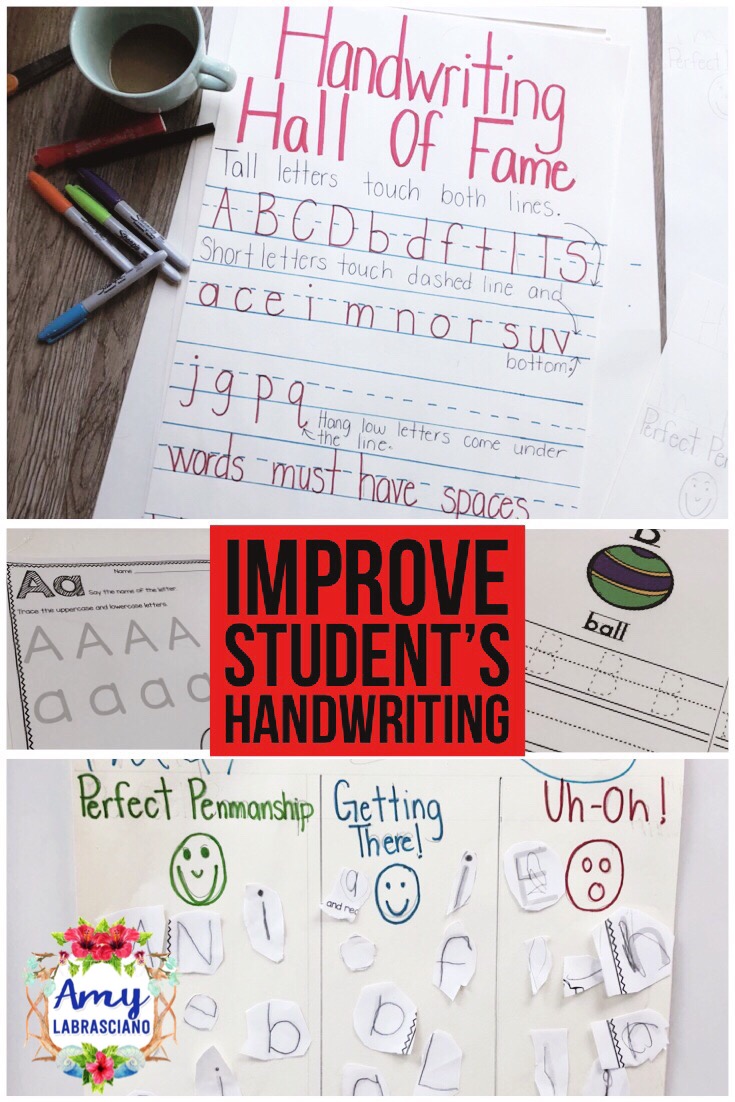 Handwriting
Hall Of Fame
Tall letters touch both lines.
A B C D b d f t l T S
Short letters touch dashed line and
a c e i m n o r s u v
bottom.
j g p q
Hang low letters come under
the line.
words must have spaces
Perfect!
Perfect Pe
Aa
Name
Say the name of the letter
Trace the uppercase and lowercase letters
A A A A
a a a a
IMPROVE
STUDENT'S
HANDWRITING
B
ball
b b b
Perfect Penmanship
Getting
There!
Uh-Oh!
N i
a
b
a
and rec
i
f
b
a L
E
h
a
Amy
LABRASCIANO